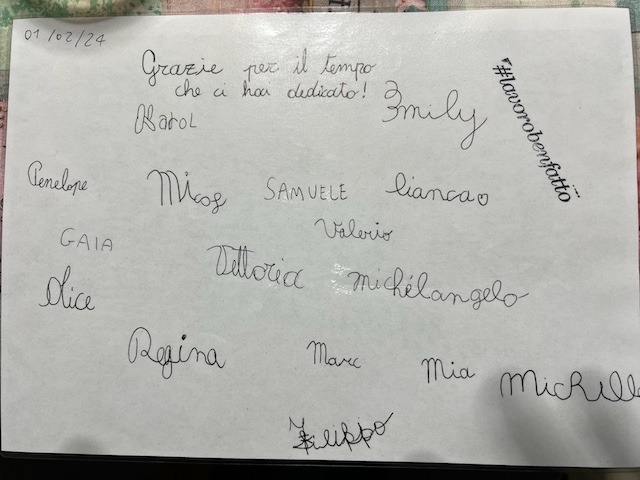 01/02/24
Grazie per il tempo
che ci hai dedicato!
#lavorobenfatto...
Karol
Emily
Penelope
SAMUELE
Bianca
Valerio
GAIA
Vettoria
Michélangelo
Alice
Regina
Marc
Mia
Filippo